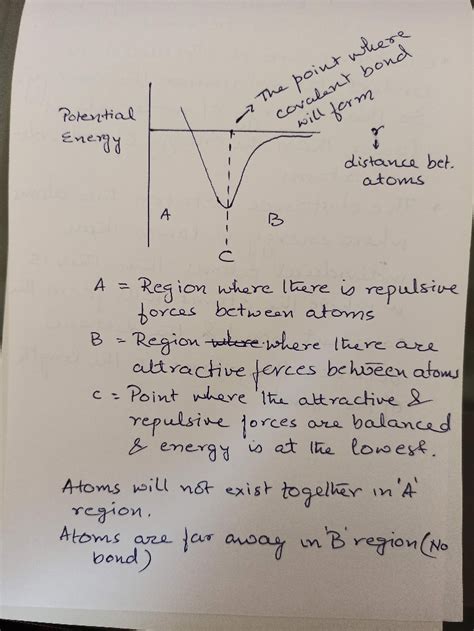 The point where
covalent bond
will form
Potential
Energy
r
distance bet.
atoms
A
B
C
A = Region where there is repulsive
forces between atoms
B = Region where where there are
attractive forces between atoms
C = Point where the attractive &
repulsive forces are balanced
& energy is at the lowest.
Atoms will not exist together in 'A'
region.
Atoms are far away in 'B' region (No
bond)